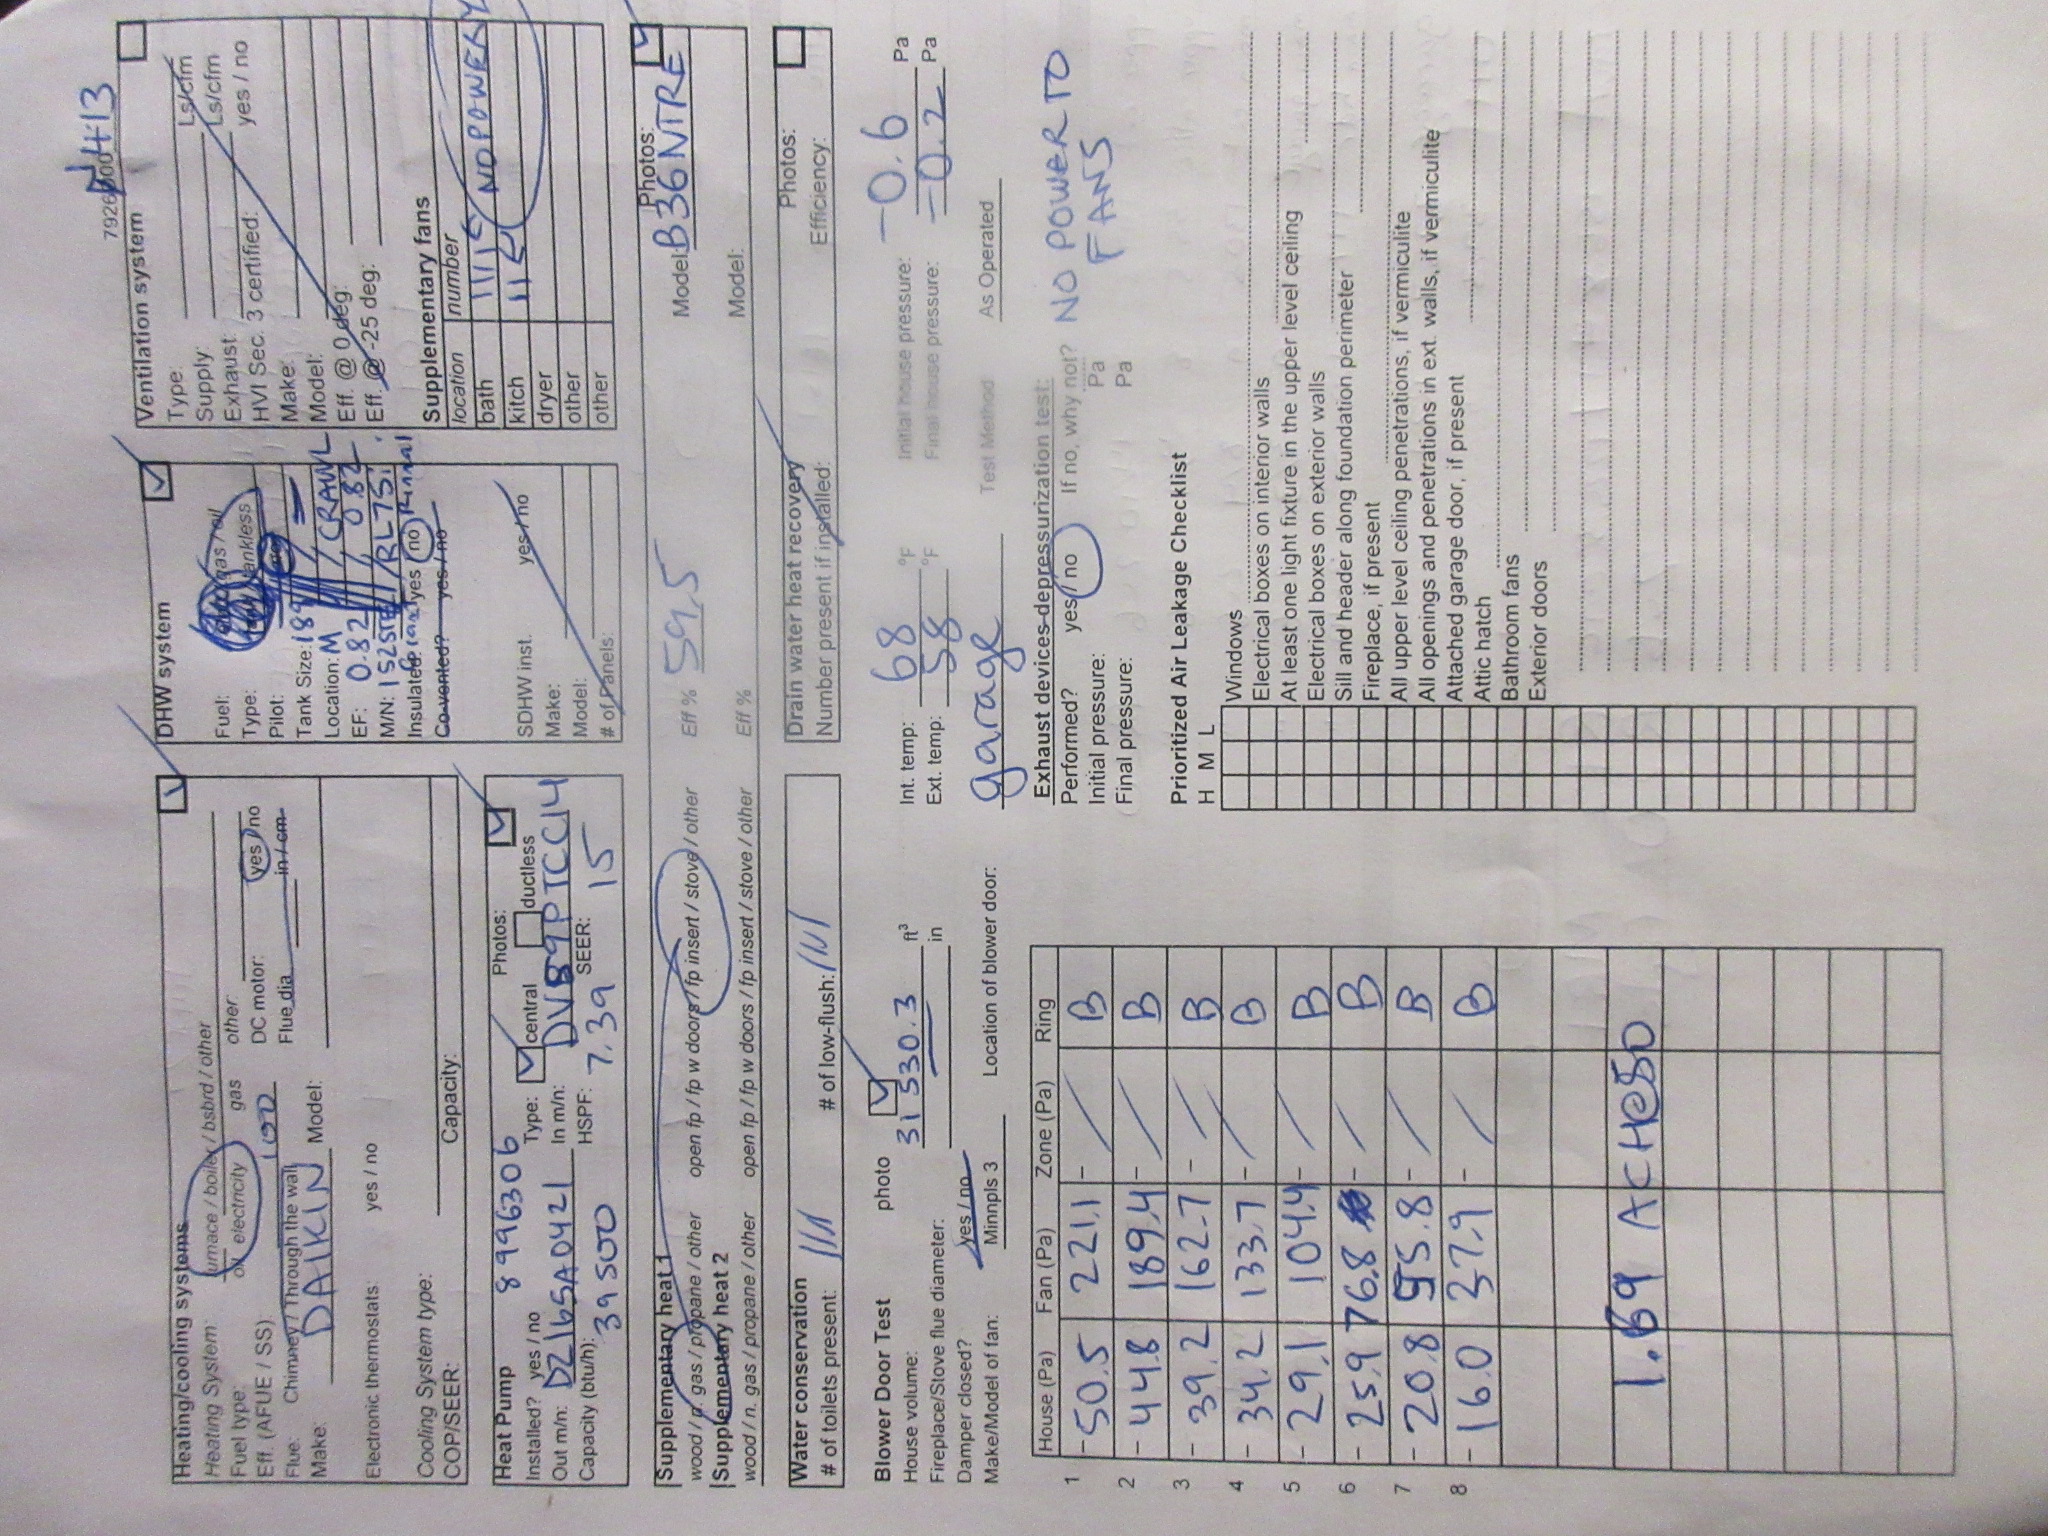 7926 D0 0413
Heating/cooling systems
Heating System: furnace / boiler / bsbrd / other
Fuel type: electricity gas other:
Eff. (AFUE / SS) 100 DC motor: yes / no
Flue: Chimney / Through the wall Flue dia in / cm
Make: DAIKIN Model:
Electronic thermostats: yes / no
Cooling System type:
COP/SEER: Capacity:
DHW system
Fuel: gas / oil
Type: tankless
Pilot:
Tank Size: 189
Location: M / CRAWL
EF: 0.82 / 0.82
M/N: / RL75i
Insulated: yes / no Rinnai
Co-vented? yes / no
SDHW inst. yes / no
Make:
Model:
# of Panels:
Ventilation system
Type:
Supply: Ls/cfm
Exhaust: Ls/cfm
HVI Sec. 3 certified: yes / no
Make:
Model:
Eff. @ 0 deg:
Eff. @ -25 deg:
Supplementary fans
location number
bath NO POWER
kitch
dryer
other
other
Heat Pump 8996306 Photos:
Installed? yes / no Type: central ductless
Out m/n: DZ16SA0421 In m/n: DV89PTCC14
Capacity (btu/h): 39500 HSPF: 7.39 SEER: 15
Supplementary heat 1 Photos:
wood / n. gas / propane / other open fp / fp w doors / fp insert / stove / other Eff % 59.5 Model: B36NTRE
Supplementary heat 2
wood / n. gas / propane / other open fp / fp w doors / fp insert / stove / other Eff % Model:
Water conservation
# of toilets present: # of low-flush:
Drain water heat recovery Photos:
Number present if installed: Efficiency:
Blower Door Test photo
House volume: 31530.3 ft³
Fireplace/Stove flue diameter: in
Damper closed? yes / no
Make/Model of fan: Minnpls 3 Location of blower door: garage
Int. temp: 68 °F Initial house pressure: -0.6 Pa
Ext. temp: 58 °F Final house pressure: -0.2 Pa
Test Method As Operated
House (Pa) Fan (Pa) Zone (Pa) Ring
1 - 50.5 221.1 - / B
2 - 44.8 189.4 - / B
3 - 39.2 162.7 - / B
4 - 34.2 133.7 - / B
5 - 29.1 104.4 - / B
6 - 25.9 76.8 - / B
7 - 20.8 55.8 - / B
8 - 16.0 37.9 - / B
1.69 ACH@50
Exhaust devices depressurization test:
Performed? yes / no If no, why not? NO POWER TO FANS
Initial pressure: Pa
Final pressure: Pa
Prioritized Air Leakage Checklist
H M L
Windows
Electrical boxes on interior walls
At least one light fixture in the upper level ceiling
Electrical boxes on exterior walls
Sill and header along foundation perimeter
Fireplace, if present
All upper level ceiling penetrations, if vermiculite
All openings and penetrations in ext. walls, if vermiculite
Attached garage door, if present
Attic hatch
Bathroom fans
Exterior doors